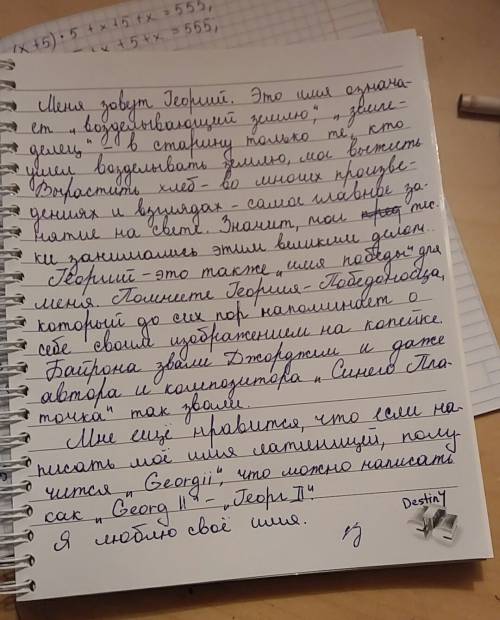 (x+5)·5+x+5+x=555,
+x+5+x=555,
Меня зовут Георгий. Это имя означа-
ет „возделывающий землю“, „земле-
делец“ – в старину только те, кто
умел возделывать землю, мог выжить
Вырастить хлеб – во многих произве-
дениях и взглядах – самое главное за-
нятие на свете. Значит, мои
ки занимались этим великим делом.
Георгий – это также „имя победы“ для
меня. Помните Георгия-Победоносца,
который до сих пор напоминает о
себе своим изображением на копейке.
Байрона звали Джорджем и даже
автора и композитора „Синего Пла-
точка“ так звали.
Мне ещё нравится, что если на-
писать моё имя латиницей, полу
чится „Georgii“, что можно написать
как „Georg II“ – „Георг II“.
Я люблю своё имя.
DestinY